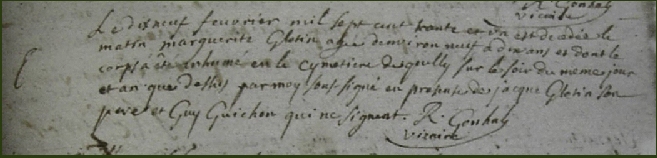 R. Gouhay
vicaire
Le dixneuf feuvrier mil sept cent trante et un est decedée le
matin margueritte Glotin agée denviron neuf a dix ans et dont le
corps a été inhumé en le cymetiere sur le soir du meme jour
et an que dessus par moy sous signé en presence de jacque Glotin son
pere et Guy Guichon qui ne signent. R. Gouhay
vicaire